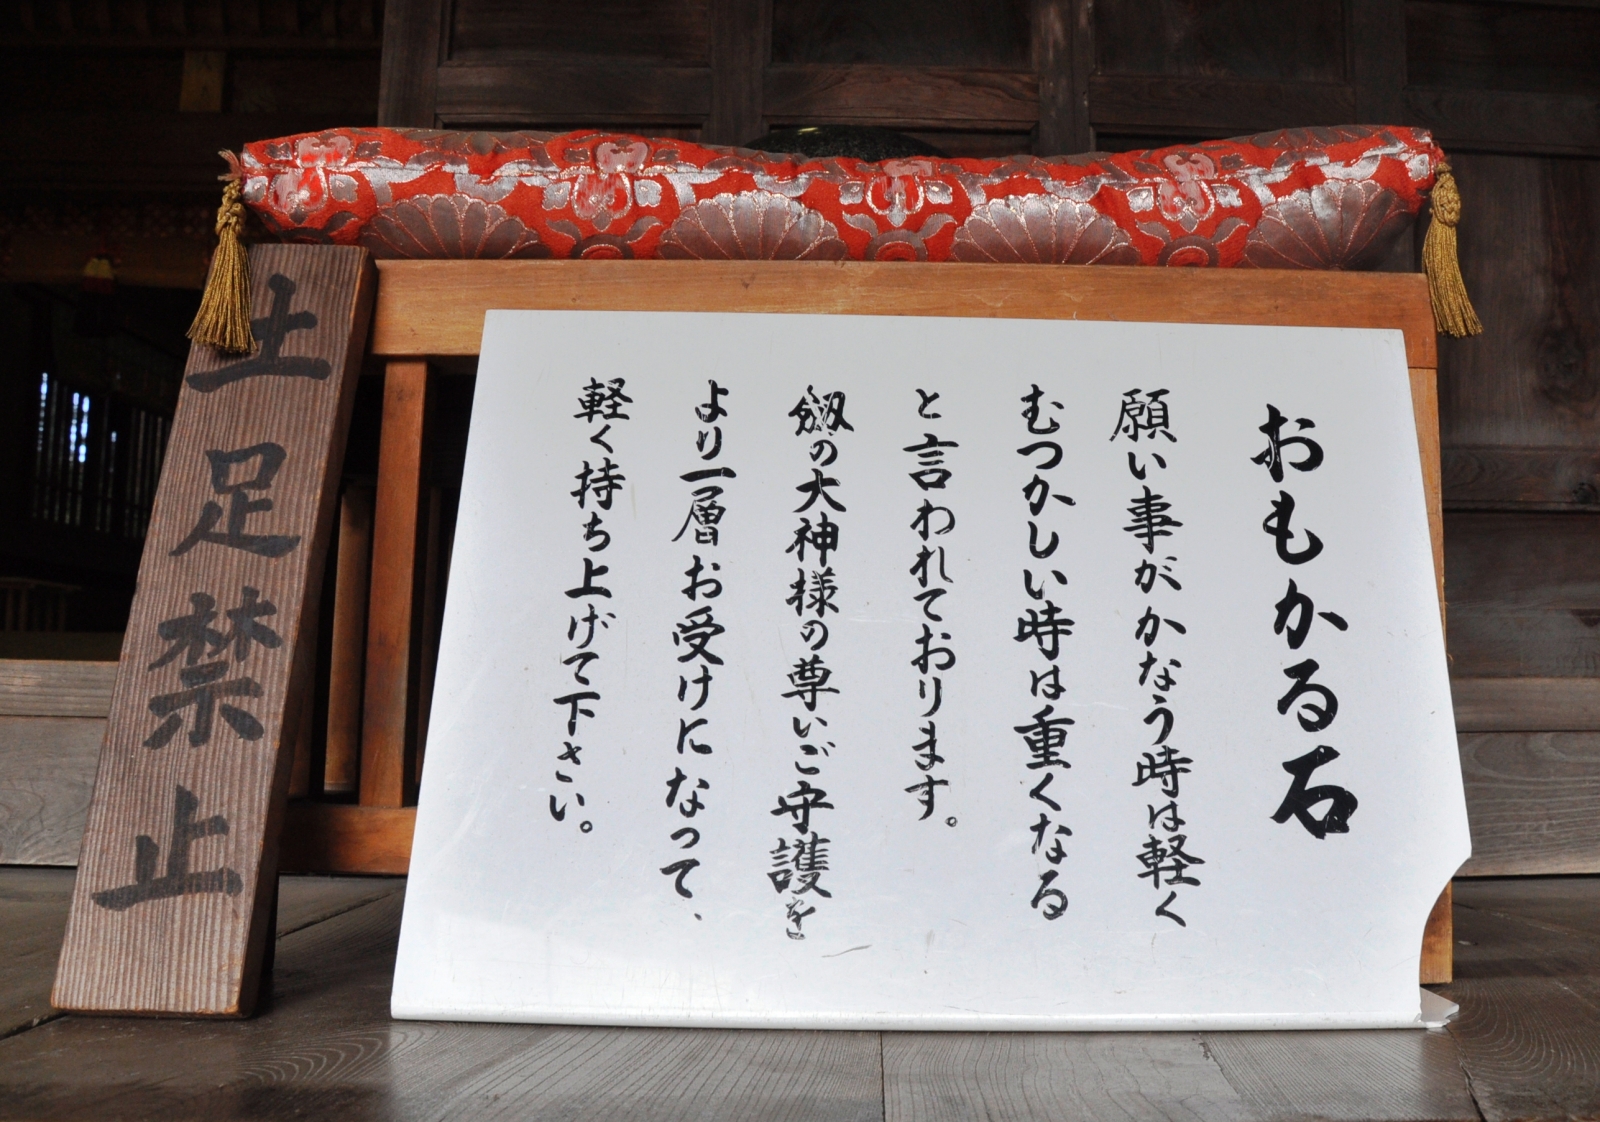 おもかる石
願い事がかなう時は軽く
むつかしい時は重くなる
と言われております。
劔の大神様の尊いご守護を
より一層お受けになって、
軽く持ち上げて下さい。
土足禁止